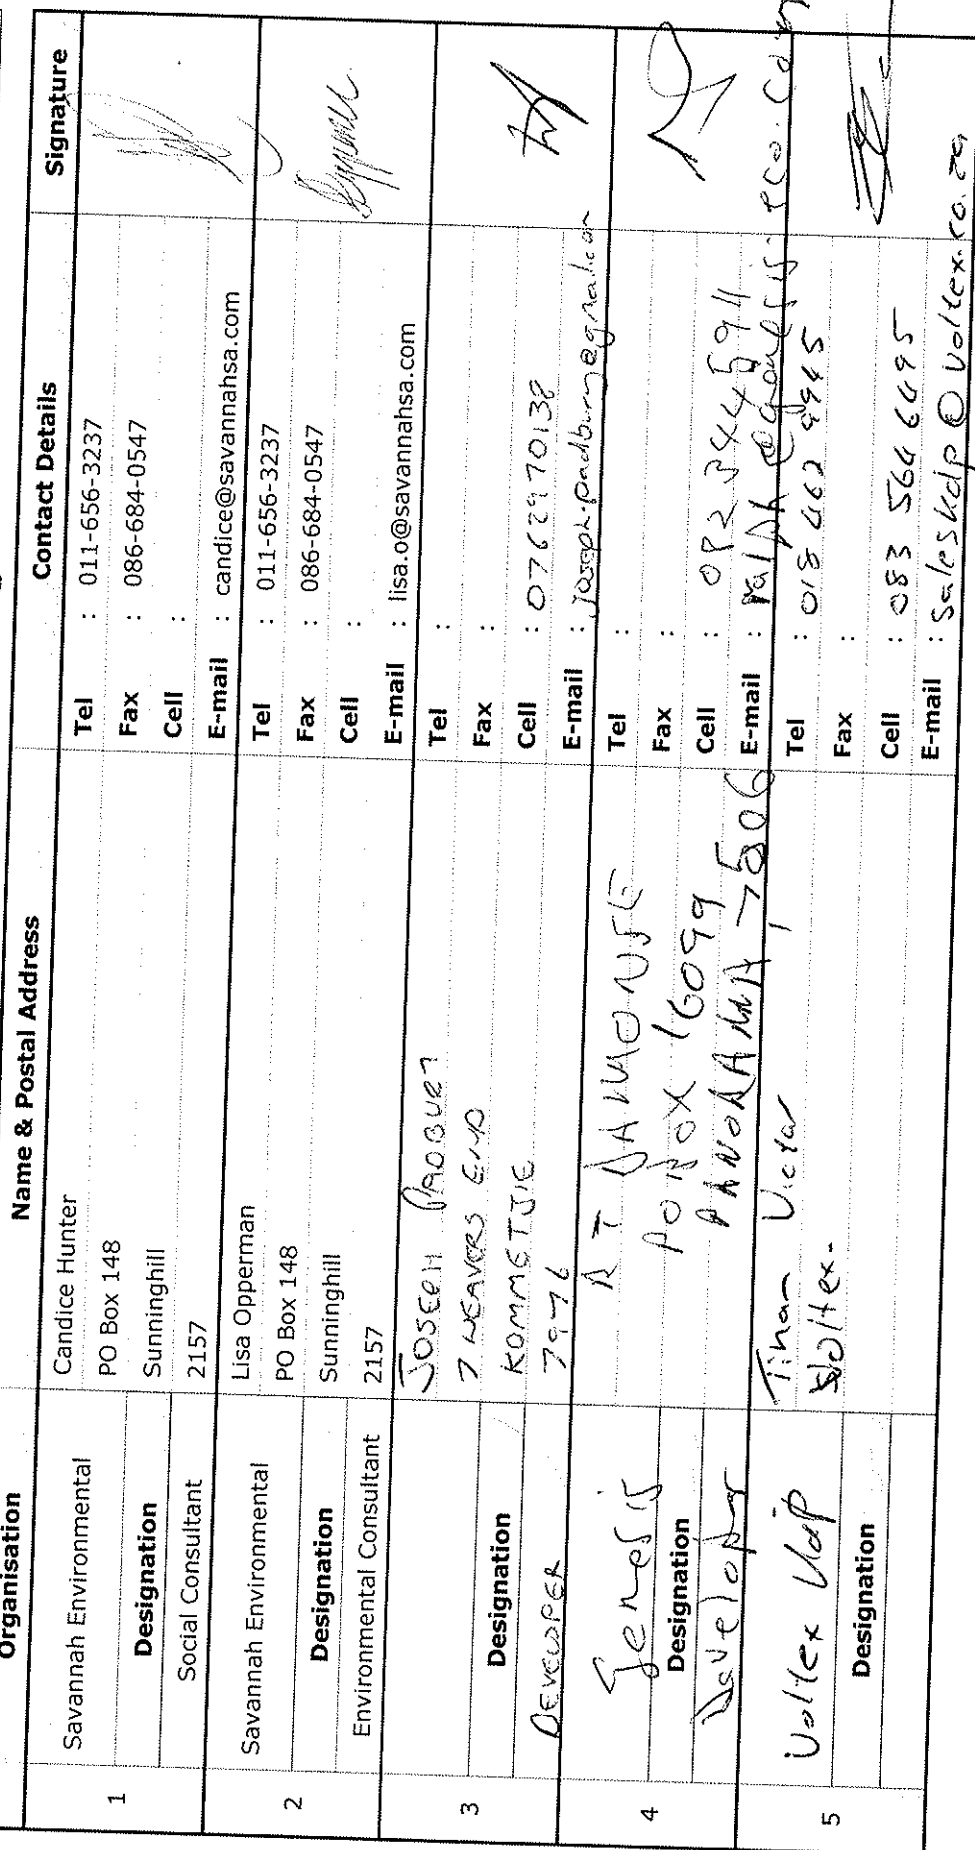 Organisation
Name & Postal Address
Contact Details
Signature
1
Savannah Environmental
Designation
Social Consultant
Candice Hunter
PO Box 148
Sunninghill
2157
Tel : 011-656-3237
Fax : 086-684-0547
Cell :
E-mail : candice@savannahsa.com
2
Savannah Environmental
Designation
Environmental Consultant
Lisa Opperman
PO Box 148
Sunninghill
2157
Tel : 011-656-3237
Fax : 086-684-0547
Cell :
E-mail : lisa.o@savannahsa.com
3
Designation
DEVELOPER
JOSEPH
7 WEAVERS END
KOMMETJIE
7976
Tel :
Fax :
Cell : 0762970138
E-mail :
4
Genesis
Designation
Developer
PO BOX 16099
PANORAMA 7506
Tel :
Fax :
Cell : 082 3444 5911
E-mail :
5
Voltex Kdp
Designation
Victor
Voltex.
Tel : 018
Fax :
Cell : 083 566 6695
E-mail : saleskdp@voltex.co.za